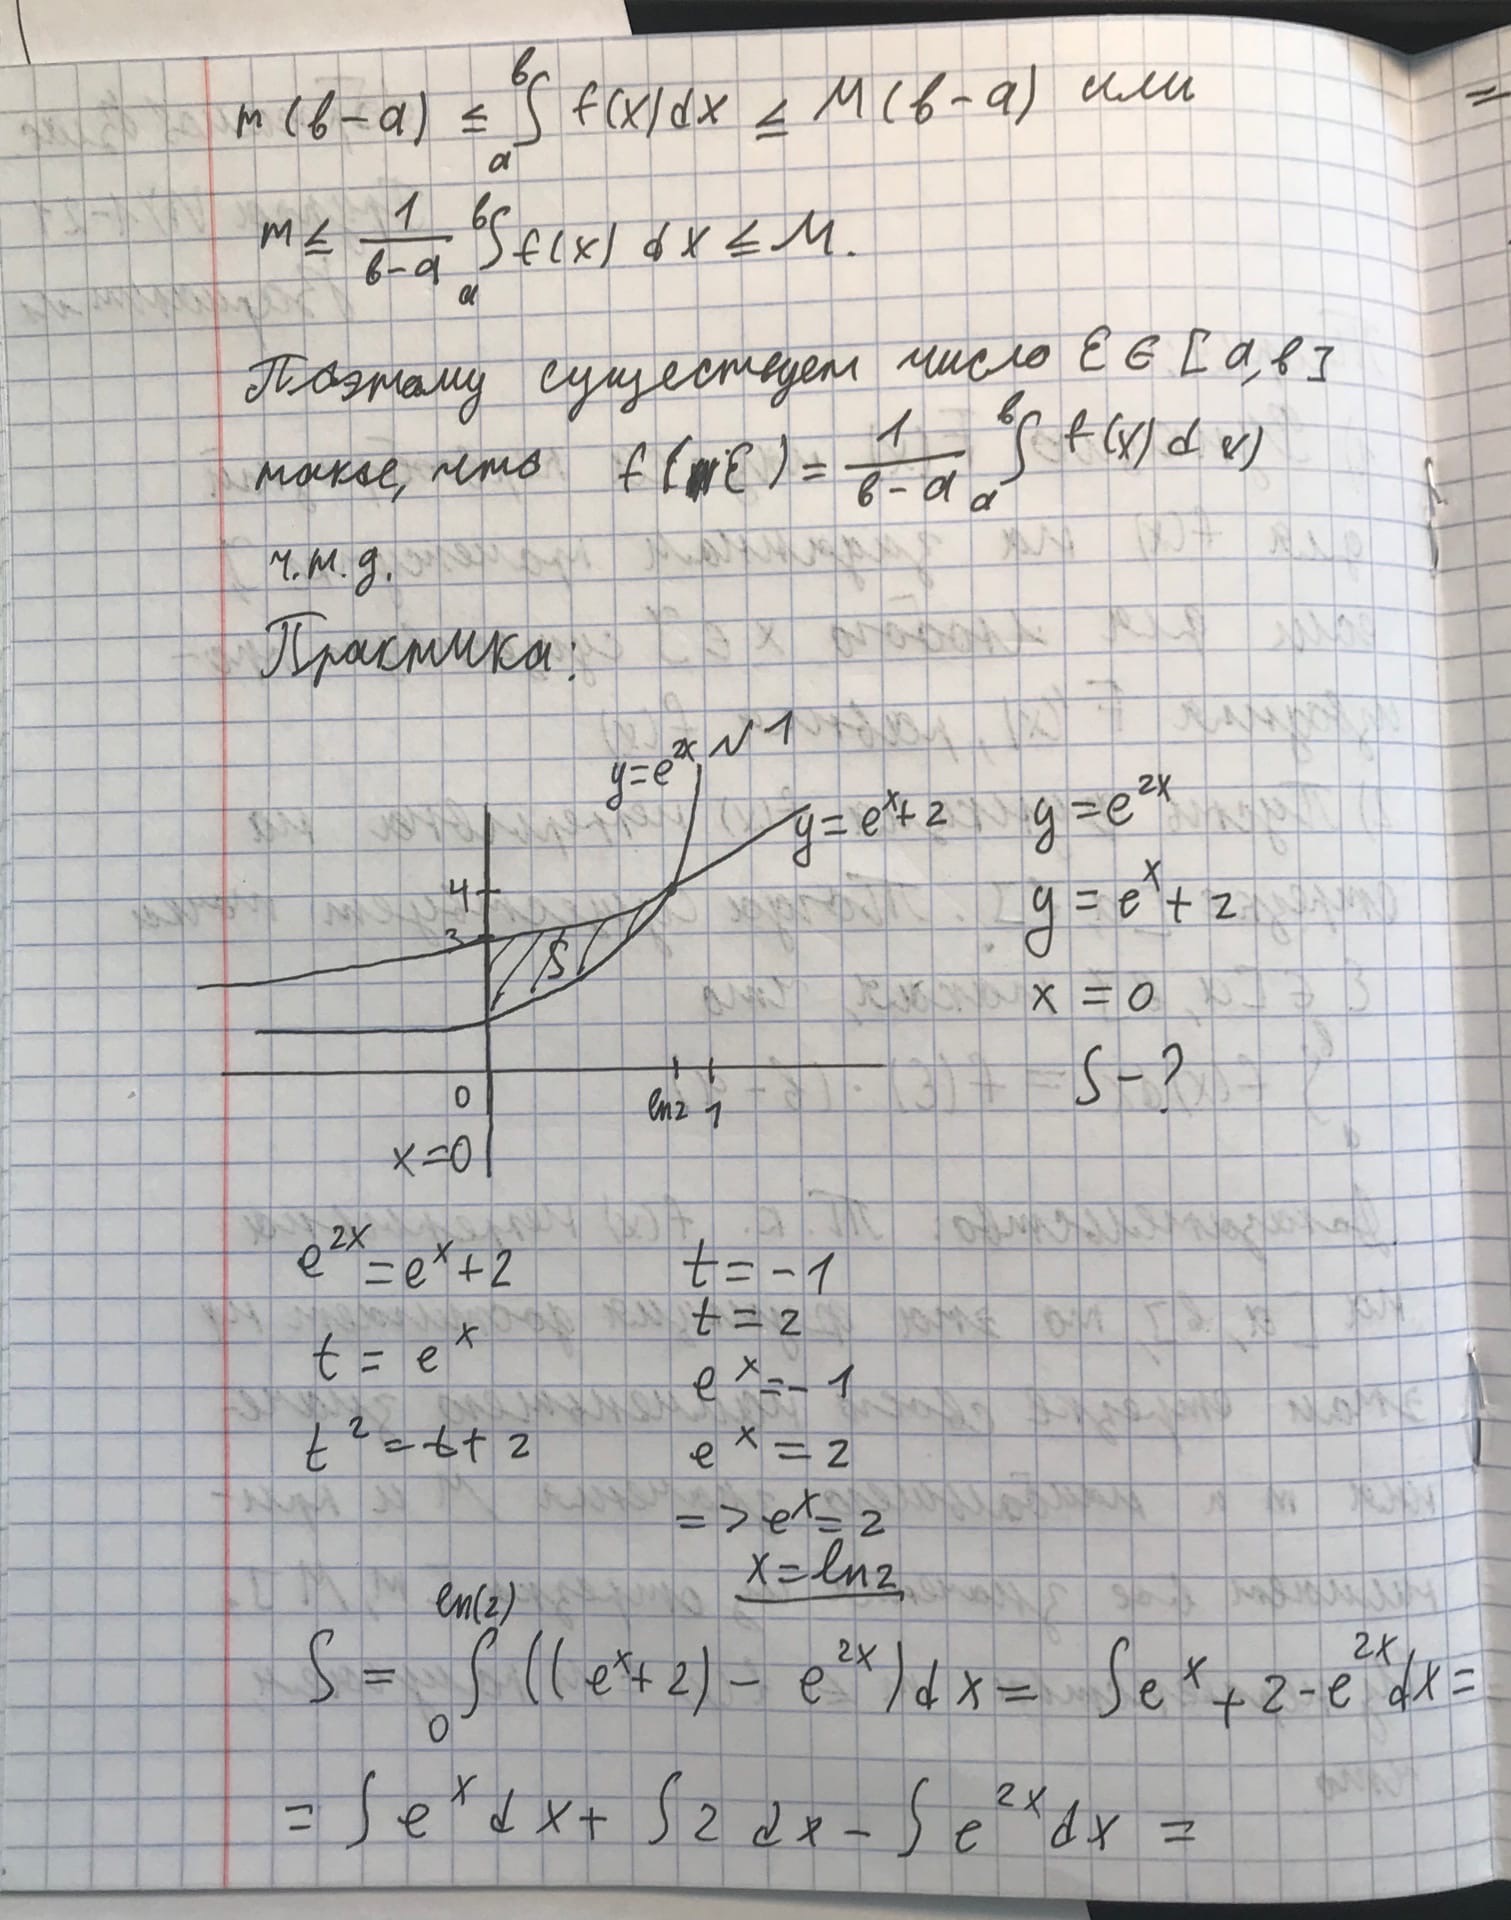 m(в-a) ≤ ₐᵇ∫ f(x)dx ≤ M(в-a) или
=
m ≤ 1/(в-a) ₐᵇ∫ f(x) dx ≤ M.
Поэтому существует число ℇ ∈ [a,в]
такое, что f(ℇ) = 1/(в-a) ₐᵇ∫ f(x)dx)
ч.т.д.
Практика:
№1
y=e^{2x}
y=e^x+2
4
3
S
0
ln2
1
x=0
y=e^{2x}
y=e^x+2
x=0
S-?
e^{2x}=e^x+2
t=e^x
t²=t+2
t=-1
t=2
e^x=-1
e^x=2
=>e^x=2
x=ln2
S = ₀^{ln(2)}∫((e^x+2)-e^{2x})dx= ∫e^x+2-e^{2x}dx=
=∫e^x dx+∫2 dx-∫e^{2x}dx=